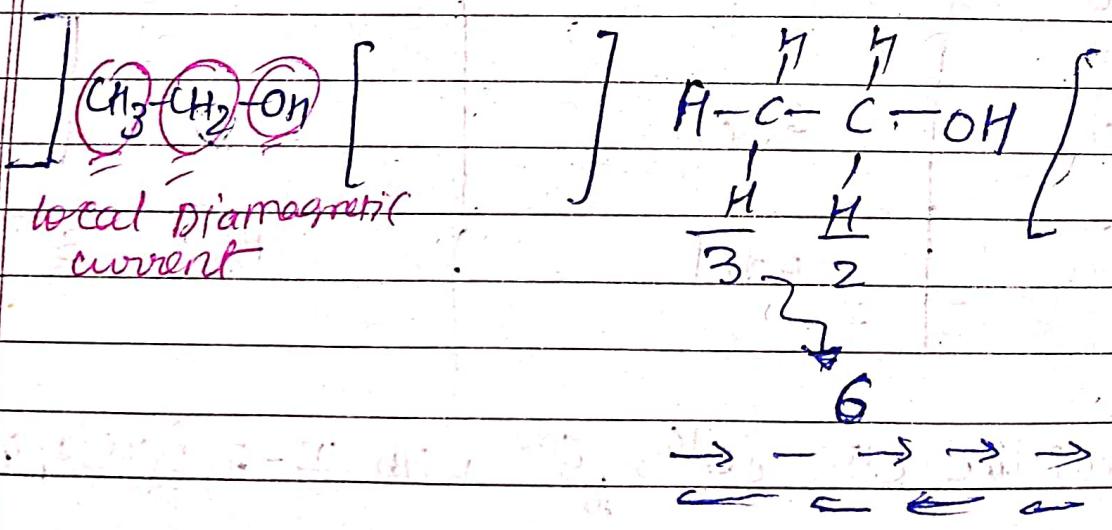 ] CH3-CH2-OH [
local Diamagnetic
current
] H H
H-C-C-OH [
H H
3 2
6
→ - → → →
← ← ← ←